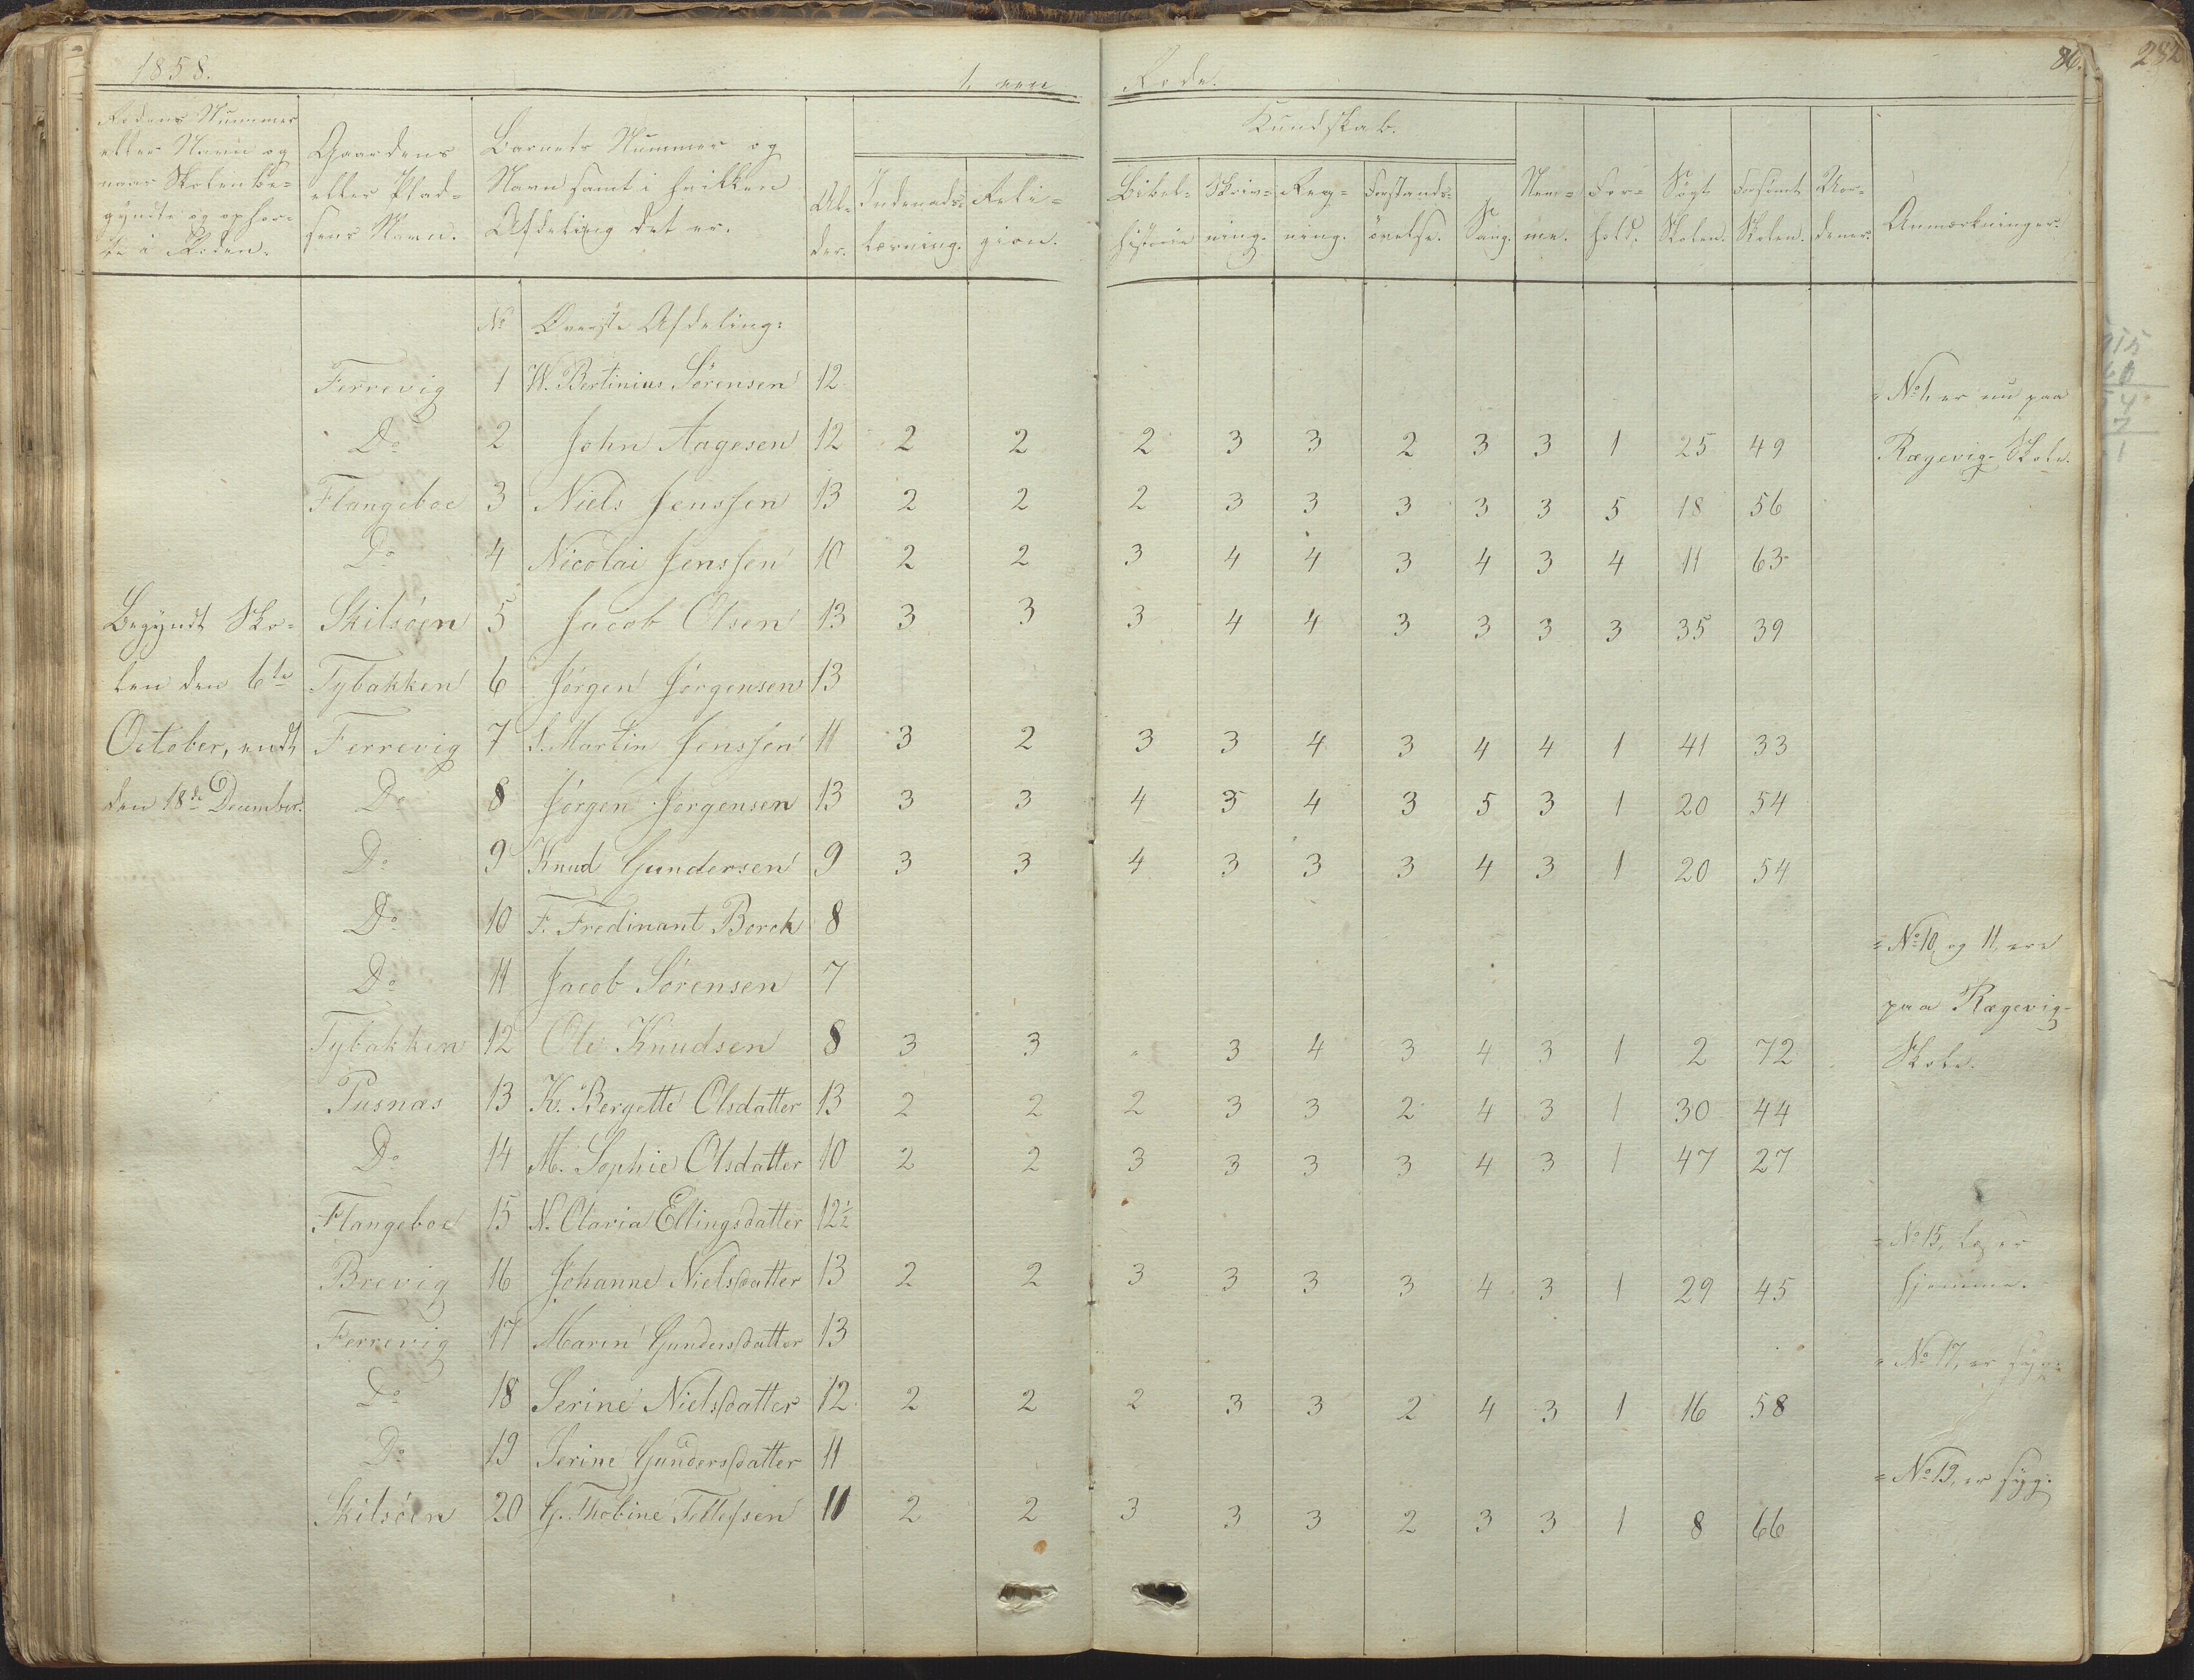 1858.
1,
Rode.
86.
282
Rodens Nummer
eller Navn og
naar Skolen be=
gyndte og ophør=
te i Roden.
Gaardens
eller Plad=
sens Navn.
Barnets Nummer og
Navn samt i hvilken
Afdeling det er.
Al=
der.
Indenads=
læsning.
Reli=
gion.
Kundskab.
Bibel=
historie
Skriv=
ning.
Reg=
ning.
Forstands=
øvelse.
Sang.
Nem=
me.
For=
hold.
Søgt
Skolen.
Forsømt
Skolen.
Anmærkninger.
No Øverste Afdeling:
Ferrevig 1 W. Bertinius Sørensen 12 = No 1, er nu paa
Do 2 John Aagesen 12 2 2 2 3 3 2 3 3 1 25 49 Rægevig-Skole.
Flangeboe 3 Niels Jenssen 13 2 2 2 3 3 3 3 3 5 18 56
Do 4 Nicolai Jenssen 10 2 2 3 4 4 3 4 3 4 11 63
Begyndt Sko= Skilsøen 5 Jacob Olsen 13 3 3 3 4 4 3 3 3 3 35 39
len den 6te Tybakken 6 Jørgen Jørgensen 13
October, endt Ferrevig 7 S. Martin Jenssen 11 3 2 3 3 4 3 4 4 1 41 33
den 18de December. Do 8 Jørgen Jørgensen 13 3 3 4 3 4 3 5 3 1 20 54
Do 9 Knud Gundersen 9 3 3 4 3 3 3 4 3 1 20 54
Do 10 F. Fredinant Borch 8 = No 10, og 11, ere
Do 11 Jacob Sørensen 7 paa Rægevig-
Tybakken 12 Ole Knudsen 8 3 3 " 3 4 3 4 3 1 2 72 Skole.
Pusnæs 13 K. Bergette Olsdatter 13 2 2 2 3 3 2 4 3 1 30 44
Do 14 M. Sophie Olsdatter 10 2 2 3 3 3 3 4 3 1 47 27
Flangeboe 15 N. Olavia Ellingsdatter 12½ = No 15, er
Brevig 16 Johanne Nielsdatter 13 2 2 3 3 3 3 4 3 1 29 45 hjemme.
Ferrevig 17 Maren Gundersdatter 13 = No 17, er syg.
Do 18 Serine Nielsdatter 12 2 2 2 3 3 2 4 3 1 16 58
Do 19 Serine Gundersdatter 11 = No 19, er syg.
Skilsøen 20 G. Thobine Tellefsen 11 2 2 3 3 3 2 3 3 1 8 66